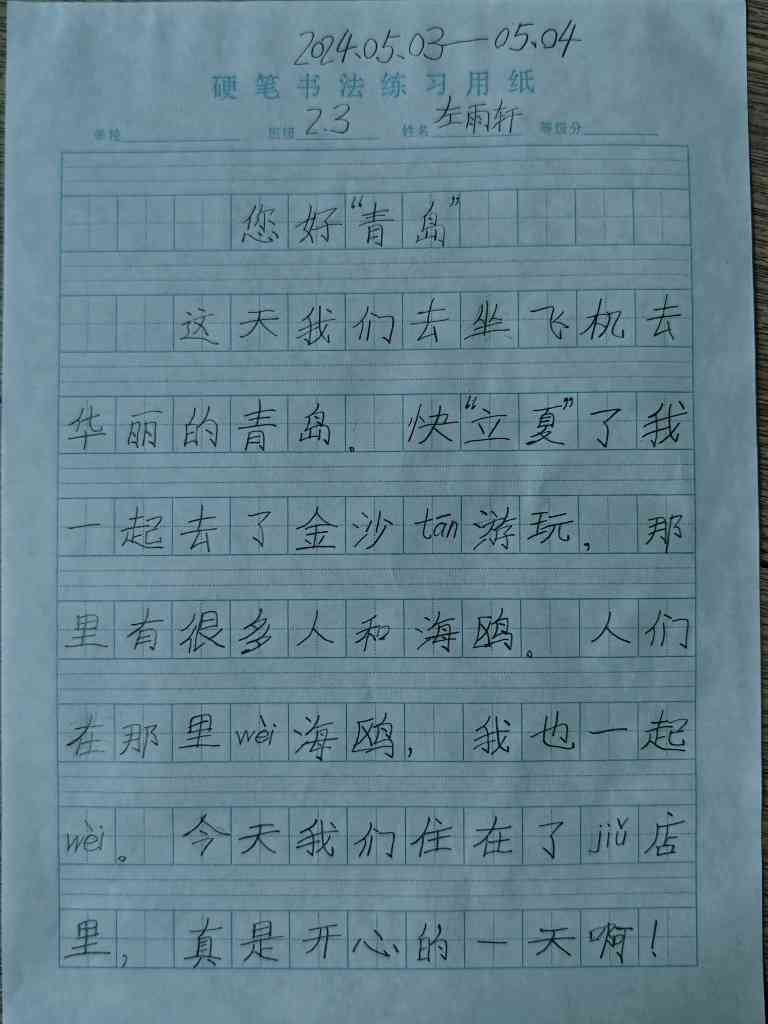 2024.05.03—05.04
硬笔书法练习用纸
学校 班级 2.3 姓名 左雨轩 等级分
您好“青岛”
这天我们去坐飞机去
华丽的青岛。快“立夏”了我
一起去了金沙tān游玩，那
里有很多人和海鸥。人们
在那里wèi海鸥，我也一起
wèi。今天我们住在了jiǔ店
里，真是开心的一天啊！